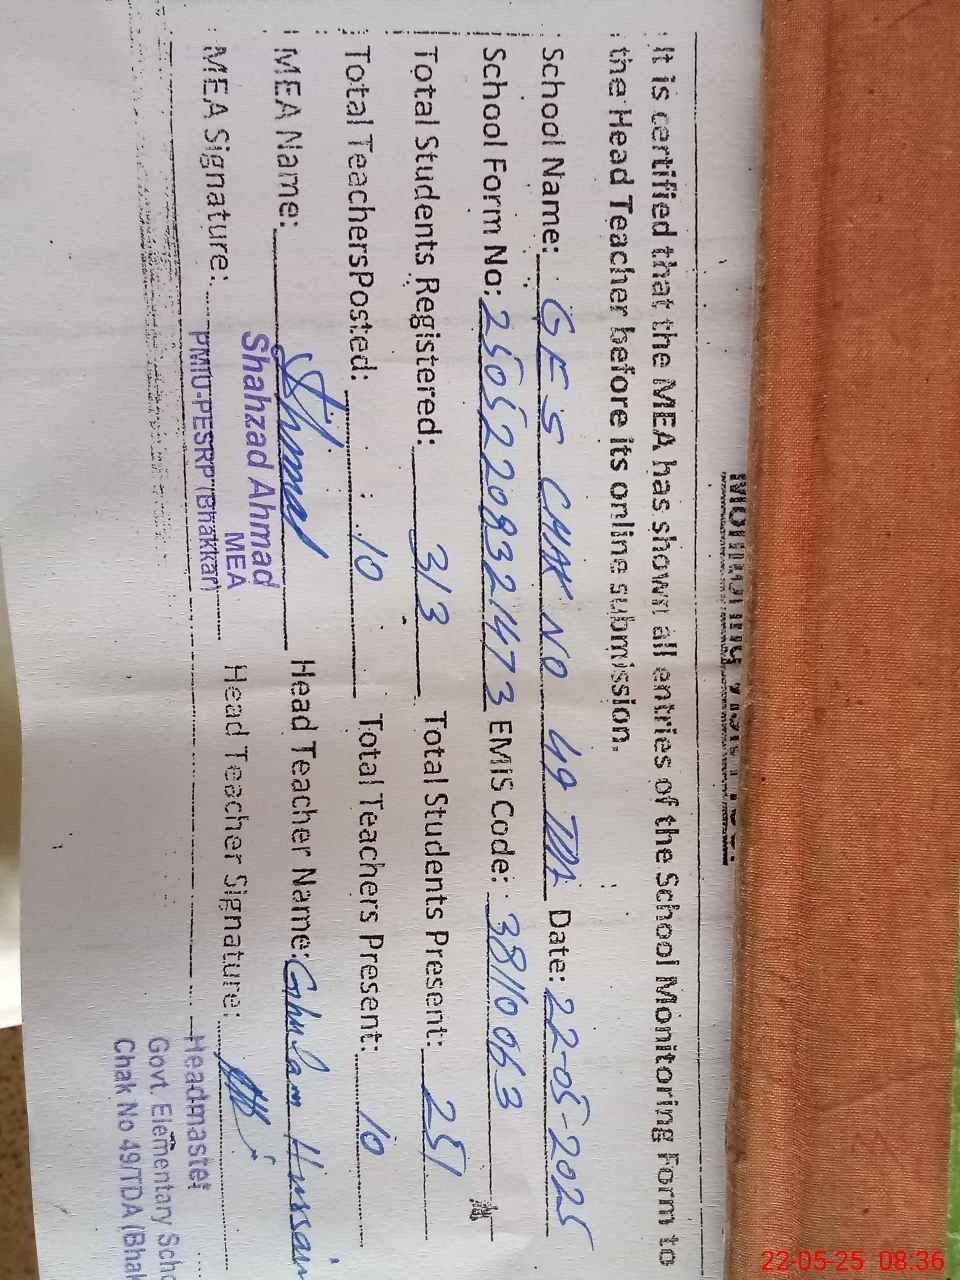 It is certified that the MEA has shown all entries of the School Monitoring Form to
the Head Teacher before its online submission.
School Name: GES CHAK NO 49 TDA Date: 22-05-2025
School Form No: 25052209321473 EMIS Code: 38110063
Total Students Registered: 313 Total Students Present: 251
Total Teachers Posted: 10 Total Teachers Present: 10
MEA Name: Ahmad Head Teacher Name: Ghulam Hussain
MEA Signature: Head Teacher Signature:
Shahzad Ahmad
MEA
PMIU-PESRP (Bhakkar)
Headmaster
Govt. Elementary Scho
Chak No 49/TDA (Bhak
22-05-25 08:36